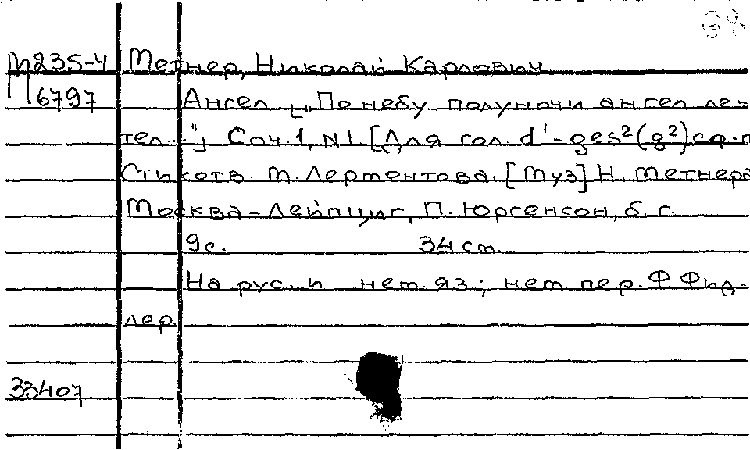 38
М235-4 Метнер, Николай Карлович
М6797 Ангел ["По небу полуночи ангел ле-
тел..."], Соч. 1, N1. [Для гол. d¹-ges²(g²) с ф-п
Стихотв. М. Лермонтова. [Муз] Н. Метнера
Москва-Лейпциг, П. Юргенсон, б. г.
9с. 34 cm.
На рус. и нем. яз; нем. пер. Ф Фид-
лер.
33407